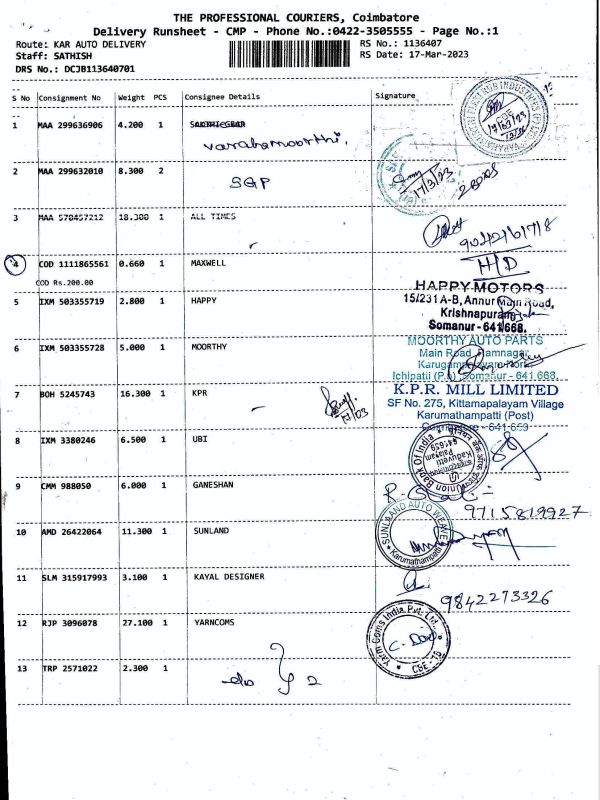 THE PROFESSIONAL COURIERS, Coimbatore
Delivery Runsheet - CMP - Phone No.:0422-3505555 - Page No.:1
Route: KAR AUTO DELIVERY
RS No.: 1136407
Staff: SATHISH
RS Date: 17-Mar-2023
DRS No.: DCJB113640701
S No Consignment No Weight PCS Consignee Details Signature
1 MAA 299636906 4.200 1
varahamoorthi.
2 MAA 299632010 8.300 2
SGP
17/3/23
3 MAA 570457212 18.300 1 ALL TIMES
4 COD 1111865561 0.660 1 MAXWELL
H/D
COD Rs.200.00
HAPPY MOTORS
5 IXM 503355719 2.800 1 HAPPY
15/231 A-B, Annur Main Road,
Krishnapuram
Somanur - 641 668.
6 IXM 503355728 5.000 1 MOORTHY
MOORTHY AUTO PARTS
Main Road, Ramnagar,
Ichipatti (P.O) Somanur - 641 668.
7 BOH 5245743 16.300 1 KPR
K.P.R. MILL LIMITED
SF No. 275, Kittampalayam Village
Karumathampatti (Post)
Coimbatore - 641 659
8 IXM 3380246 6.500 1 UBI
Union Bank Of India
Kaduvetti
Palayam
641659
9 CMM 988050 6.000 1 GANESHAN
9715819927
10 AMD 26422064 11.300 1 SUNLAND
SUNLAND AUTO WEAVE
Karumathampatti
11 SLM 315917993 3.100 1 KAYAL DESIGNER
9842273326
12 RJP 3096078 27.100 1 YARNCOMS
Yarn Coms India Pvt. Ltd.
CBE - 15
13 TRP 2571022 2.300 1